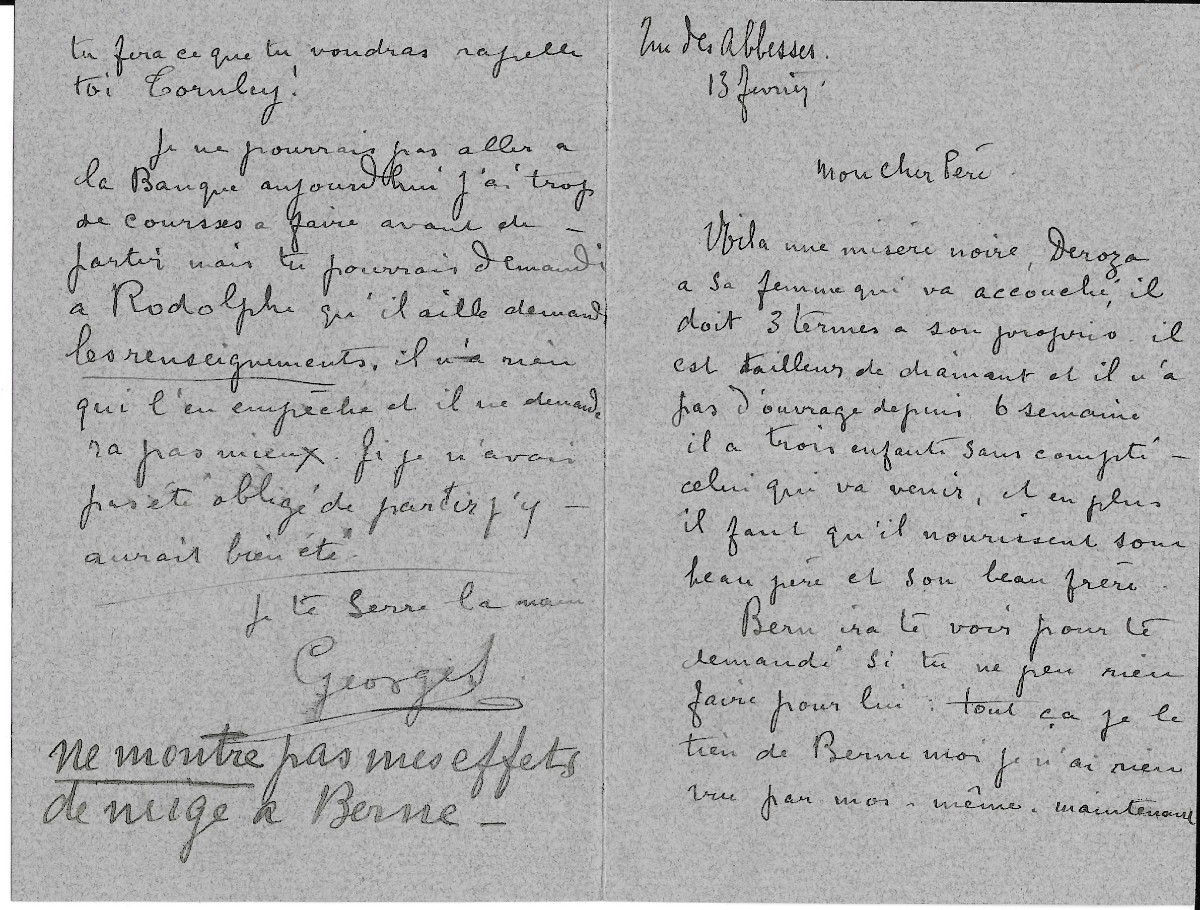 Rue des Abbesses.
13 fevrier.
Mon cher Péré
Voila une miséré noire, Deroza
a sa femme qui va accouché, il
doit 3 termes a son proprio. il
est tailleur de diamant et il n'a
pas d'ouvrage depuis 6 semaine
il a trois enfants sans compté –
celui qui va venir, et en plus
il faut qu'il nourissent son
beau péré et son beau fréré.
Bern ira te voir pour te
demandé si tu ne peu rien
faire pour lui : tout ça je le
tien de Berne moi je n'ai rien
vu par moi-même. maintenant
tu fera ce que tu voudras rapelle
toi !
Je ne pourrais pas aller a
la Banque aujourd'hui j'ai trop
de courses a faire avant de –
partir mais tu pourrais demandé
a Rodolphe qu'il aille demandé
les renseignements. il n'a rien
qui l'en empèche et il ne demande
ra pas mieux. Si je n'avais
pas été obligé de partir j'y –
aurait bien été.
Je te serre la main
Georges
ne montre pas mes effets
de neige a Berne –